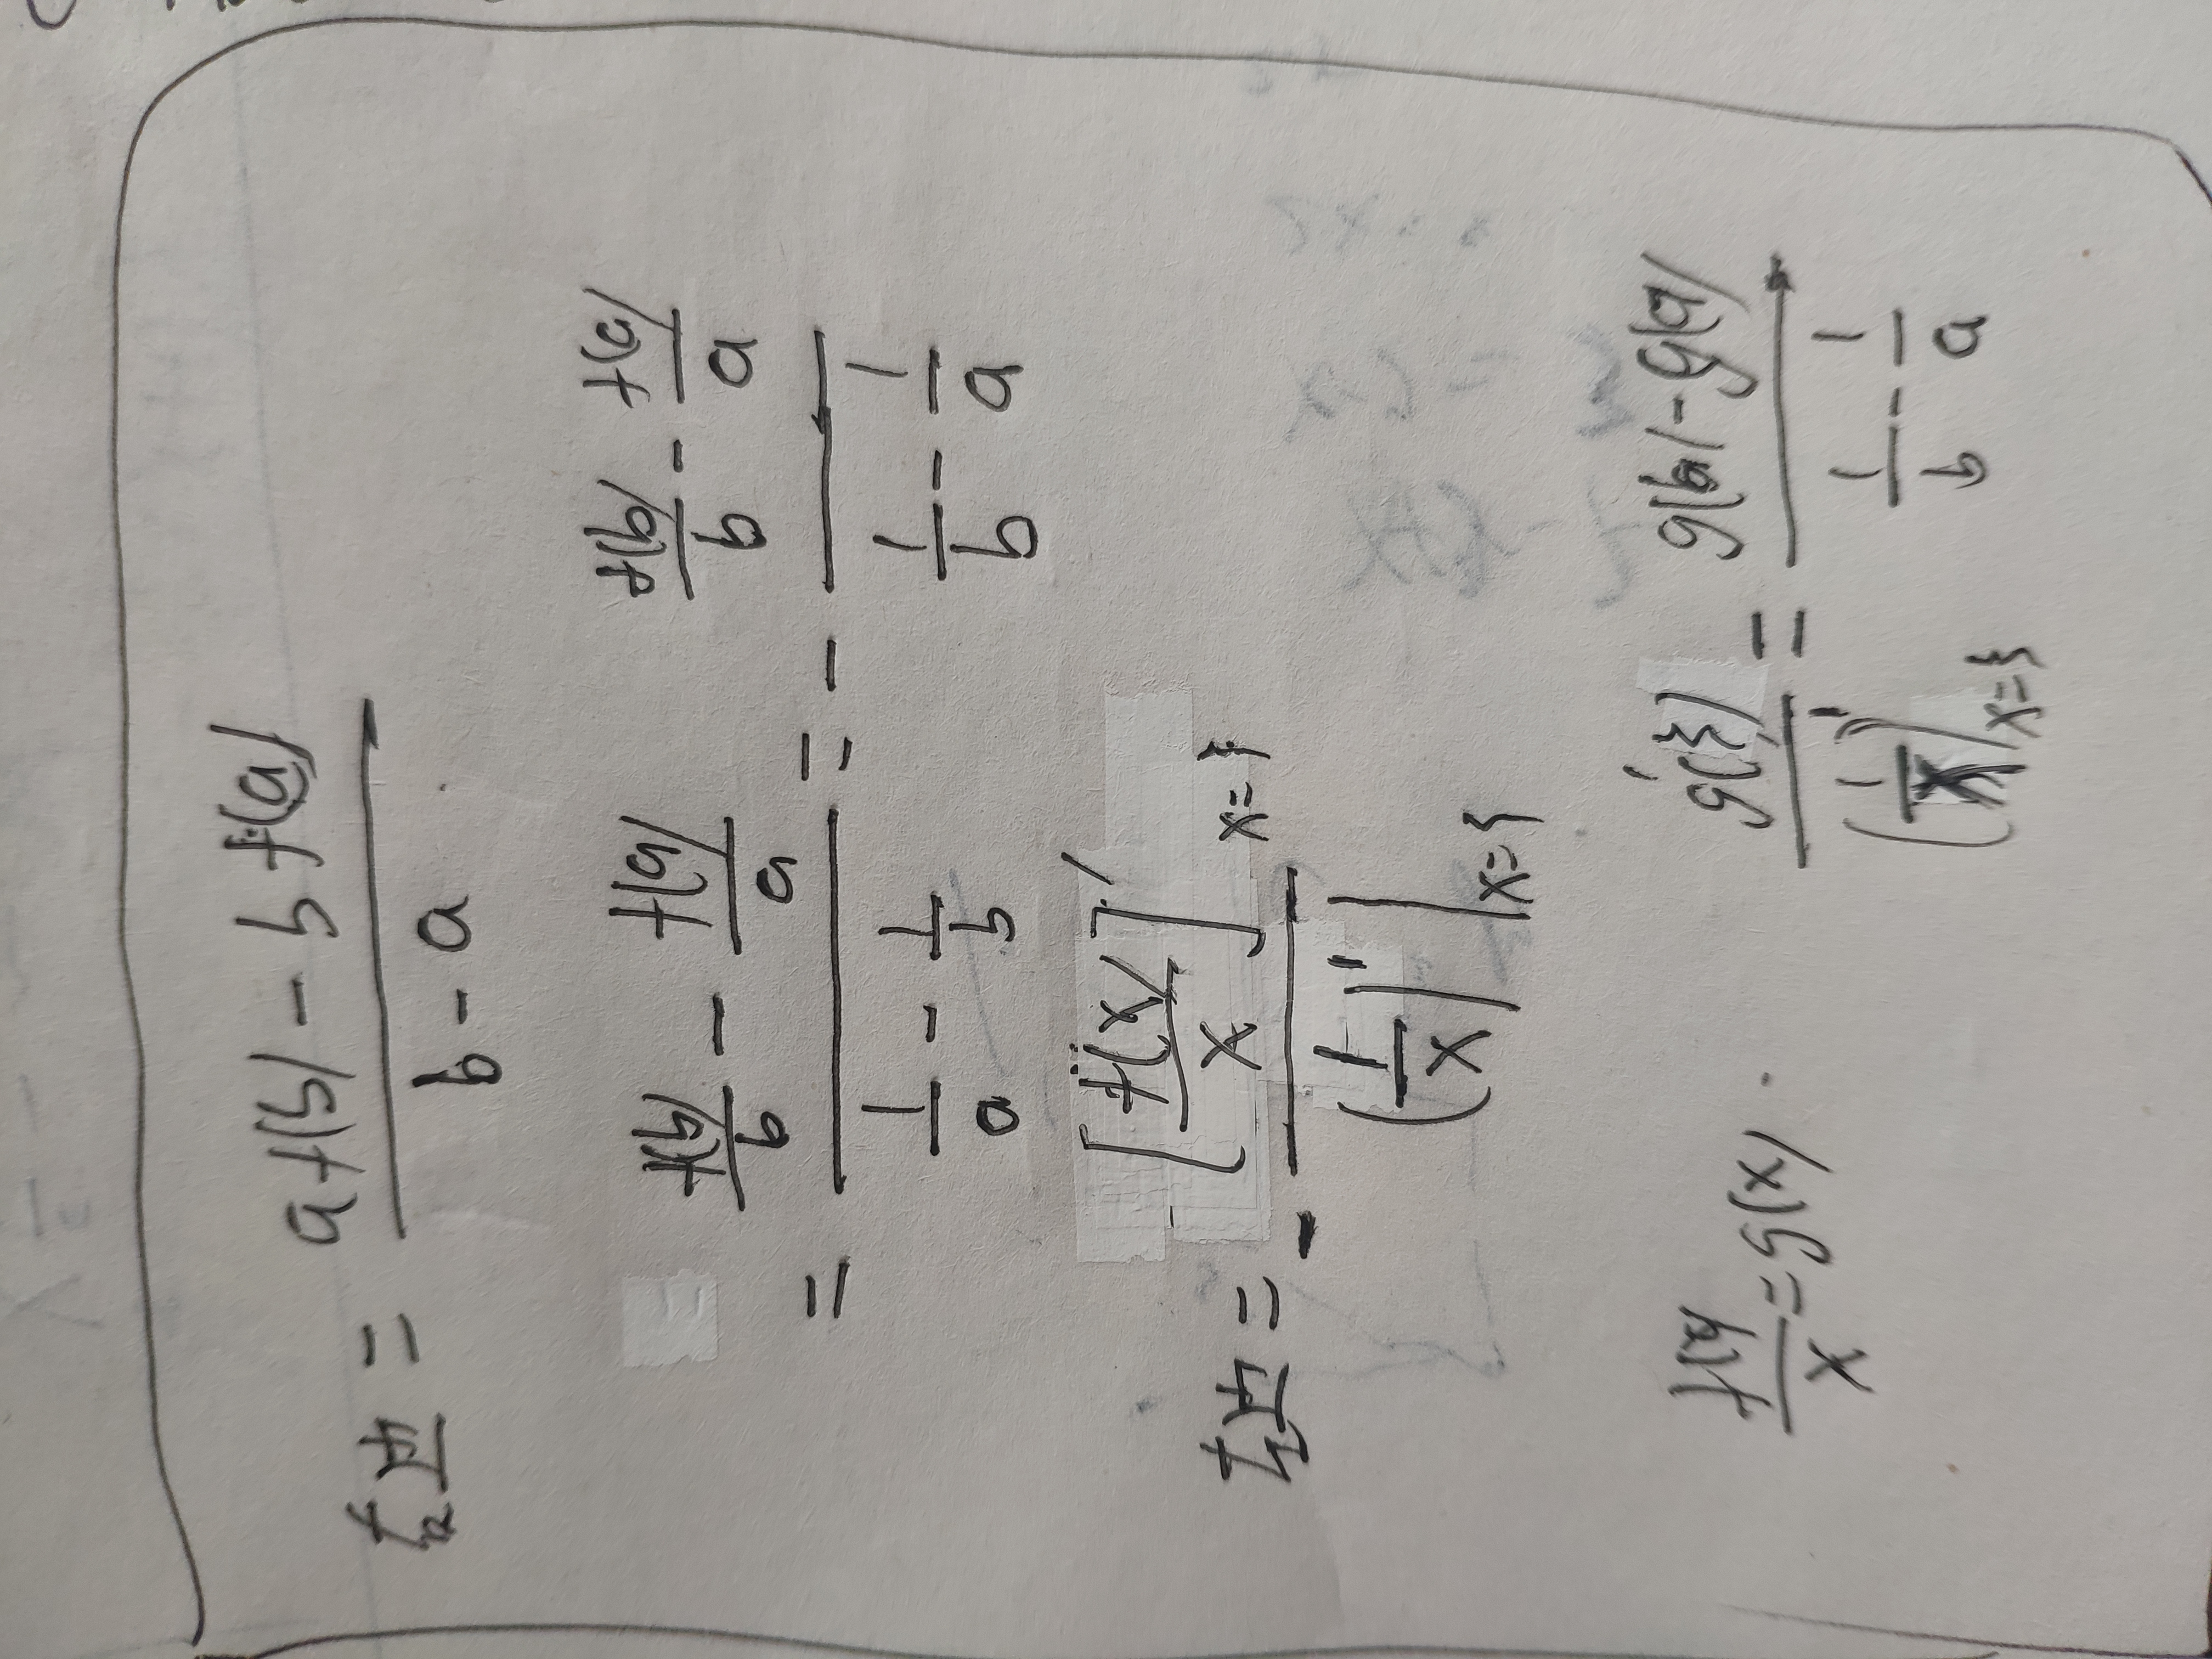 右边 = (a f(b) - b f(a)) / (b - a)
= (f(b)/b - f(a)/a) / (1/a - 1/b) = - (f(b)/b - f(a)/a) / (1/b - 1/a)
左边 = - [f(x)/x]'|x=ξ / (1/x)'|x=ξ
f(x)/x = g(x) g'(ξ) / (1/x)'|x=ξ = (g(b) - g(a)) / (1/b - 1/a)